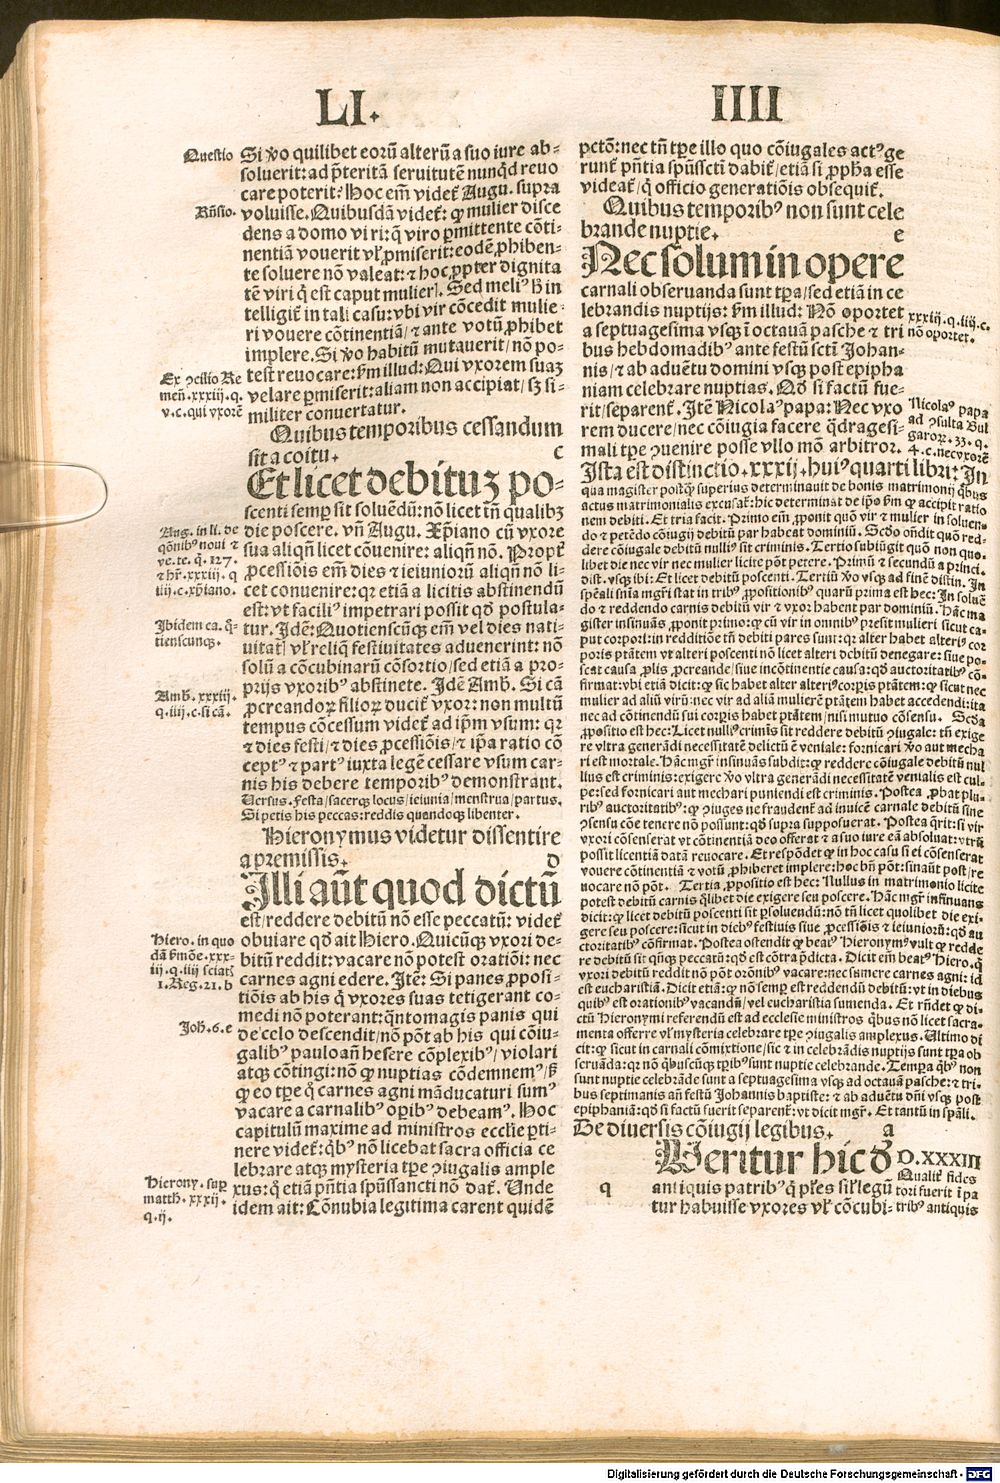 LI.
IIII
Questio
Si ꝟo quilibet eorũ alterũ a suo iure ab-
soluerit: ad p̃teritã seruitutẽ nunq̃d reuo
care poterit? Hoc em̃ videt̃ Augu. supra
Rñsio.
voluisse. Quibusdã videt̃: ꝙ mulier disce
dens a domo viri: q̃ viro ꝑmittente cõti-
nentiã vouerit vl̃ ꝓmiserit: eodẽ ꝓhiben-
te soluere nõ valeat: ⁊ hoc ꝓpter dignita
tẽ viri q̃ est caput mulieꝝ. Sed meliꝰ ß in
telligit̃ in tali casu: vbi vir cõcedit mulie-
ri vouere cõtinentiã/ ⁊ ante votũ ꝓhibet
implere. Si ꝟo habitũ mutauerit/ nõ po-
Ex ꝯcilio Re
men̄. xxxiij. q.
v. c. qui vxorẽ
test reuocare: ẜm illud: Qui vxorem suaꝫ
velare ꝑmiserit: aliam non accipiat/ sꝫ si-
militer conuertatur.
Quibus temporibus cessandum
sit a coitu. c
Et licet debituꝫ po-
scenti semꝑ sit soluẽdũ: nõ licet tñ qualibꝫ
Aug. in li. de
qõnibꝰ noui ⁊
ve. te. q. 127.
⁊ hr̃. xxxiij. q
iiij. c. xp̃iano.
die poscere. vñ Augu. Xp̃iano cũ vxore
sua aliqñ licet cõuenire: aliqñ nõ. Propt̃
ꝓcessiõis em̃ dies ⁊ ieiuniorũ aliqñ nõ li-
cet conuenire: qꝛ etiã a licitis abstinendũ
est: vt faciliꝰ impetrari possit qd̃ postula-
Ibidem ca. q̃-
tienscunqꝫ.
tur. Idẽ: Quotienscũqꝫ em̃ vel dies nati-
uitatꝭ vl̃ reliq̃ festiuitates aduenerint: nõ
solũ a cõcubinarũ cõsortio/ sed etiã a pro-
prijs vxoribꝰ abstinete. Idẽ Amb̃. Si cã
Amb̃. xxxiij.
q. iiij. c. si cã.
ꝓcreandoꝝ filioꝝ ducit̃ vxor: non multũ
tempus cõcessum videt̃ ad ip̃m vsum: qꝛ
⁊ dies festi/ ⁊ dies ꝓcessiõis/ ⁊ ip̃a ratio cõ
ceptꝰ ⁊ partꝰ iuxta legẽ cessare vsum car-
nis his debere temporibꝰ demonstrant.
Versus. Festa/ sacerqꝫ locus/ ieiunia/ menstrua/ partus.
Si petis his peccas: reddis quandoqꝫ libenter.
Hieronymus videtur dissentire
a premissis. d
Illi aũt quod dictũ
est/ reddere debitũ nõ esse peccatũ: videt̃
Hiero. in quo
dã ẜmõe. xxx-
iij. q. iiij sciatꝭ
1. Reg. 21. b
obuiare qd̃ ait Hiero. Quicũqꝫ vxori de-
bitũ reddit: vacare nõ potest oratiõi: nec
carnes agni edere. Itẽ: Si panes ꝓposi-
tiõis ab his q̃ vxores suas tetigerant co-
medi nõ poterant: q̃ntomagis panis qui
Joh̃. 6. e
de celo descendit/ nõ põt ab his qui cõiu-
galibꝰ pauloañ hesere cõplexibꝰ/ violari
atqꝫ cõtingi: non ꝙ nuptias cõdemnemꝰ/ ß
ꝙ eo tꝑe q̃ carnes agni mãducaturi sumꝰ
vacare a carnalibꝰ oꝑibꝰ debeamꝰ. Hoc
capitulũ maxime ad ministros eccl̃ie ꝑti-
nere videt̃: q̃bꝰ nõ licebat sacra officia ce
lebrare atqꝫ mysteria tꝑe ꝯiugalis ample
Hierony. suꝑ
matth̃. xxxij.
q. ij.
xus: q̃ etiã pñtia spũssancti nõ dat̃. Unde
idem ait: Cõnubia legitima carent quidẽ
pctõ: nec tñ tꝑe illo quo cõiugales actꝰ ge
runt̃ pñtia spũsscti dabit̃/ etiã si ꝓph̃a esse
videat̃/ q̃ officio generatiõis obsequit̃.
Quibus temporibꝰ non sunt cele
brande nuptie. e
Nec solum in opere
carnali obseruanda sunt tꝑa/ sed etiã in ce
lebrandis nuptijs: ẜm illud: Nõ oportet
xxxiij. q. iiij. c.
nõ oportet.
a septuagesima vsqꝫ ĩ octauã pasche ⁊ tri
bus hebdomadibꝰ ante festũ sctĩ Johan-
nis/ ⁊ ab aduẽtu domini vsqꝫ post epipha
niam celebrare nuptias. Qd̃ si factũ fue-
rit/ separent̃. Itẽ Nicolaꝰ papa: Nec vxo
Nicolaꝰ papa
ad ꝯsulta Bul
garoꝝ. 33. q.
4. c. nec vxorẽ
rem ducere/ nec cõiugia facere q̃dragesi-
mali tꝑe ꝯuenire posse vllo mõ arbitror.
Ista est distinctio. xxxij. huiꝰ quarti libri: In
qua magister postq̃ superius determinauit de bonis matrimonij q̃bus
actus matrimonialis excusat̃: hic determinat de ip̃o ẜm ꝙ accipit ratio
nem debiti. Et tria facit. Primo em̃ ꝓponit quõ vir ⁊ mulier in soluen-
do ⁊ petẽdo cõiugij debitũ par habeat dominiũ. Scd̃o oñdit quõ red-
dere cõiugale debitũ nulliꝰ sit criminis. Tertio subiũgit quõ non quo-
libet die nec vir nec mulier licite põt petere. Primũ ⁊ secundũ a princi.
dist. vsqꝫ ibi: Et licet debitũ poscenti. Tertiũ ꝟo vsqꝫ ad finẽ distin. In
sp̃eali snĩa mgr̃i stat in tribꝰ ꝓpositionibꝰ quarũ prima est hec: In soluẽ
do ⁊ reddendo carnis debitũ vir ⁊ vxor habent par dominiũ. Hãc ma
gister insinuãs/ ꝓponit primo: ꝙ cũ vir in omnibꝰ presit mulieri sicut ca-
put corpori: in redditiõe tñ debiti pares sunt: qꝛ alter habet alteriꝰ cor
poris ptãtem vt alteri poscenti nõ licet alteri debitũ denegare: siue po-
scat causa ꝓlis ꝓcreande/ siue incõtinentie causa: qd̃ auctoritatibꝰ cõ-
firmat: vbi etiã dicit: ꝙ sic habet alter alteriꝰ corꝑis ptãtem: ꝙ sicut nec
mulier ad aliũ virũ: nec vir ad aliã mulierẽ ptãtem habet accedendi: ita
nec ad cõtinendũ sui corꝑis habet ptãtem/ nisi mutuo cõsensu. Scd̃a
ꝓpositio est hec: Licet nulliꝰ criminis sit reddere debitũ ꝯiugale: tñ exige
re vltra generãdi necessitatẽ delictũ ẽ veniale: fornicari ꝟo aut mecha
ri est mortale. Hãc mgr̃ insinuãs subdit: ꝙ reddere cõiugale debitũ nul
lius est criminis: exigere ꝟo vltra generãdi necessitatẽ venialis est cul-
pe: sed fornicari aut mechari puniendi est criminis. Postea ꝓbat plu-
ribꝰ auctoritatibꝰ: ꝙ ꝯiuges ne fraudent̃ ad inuicẽ carnale debitũ sine
ꝯsensu cõe tenere nõ possunt: qd̃ supra supposuerat. Postea q̃rit: si vir
vxori cõsenserat vt cõtinentiã deo offerat ⁊ a suo iure eã absoluat: vtrũ
possit licentiã datã reuocare. Et respõdet ꝙ in hoc casu si ei cõsenserat
vouere cõtinentiã ⁊ votũ ꝓhiberet implere: hoc bñ põt: sinaũt post/ re
uocare nõ põt. Tertia ꝓpositio est hec: Nullus in matrimonio licite
potest debitũ carnis q̃libet die exigere seu poscere. Hãc mgr̃ insinuans
dicit: ꝙ licet debitũ poscenti sit ꝑsoluendũ: nõ tñ licet quolibet die exi-
gere seu poscere: sicut in diebꝰ festiuis siue ꝓcessiõis ⁊ ieiuniorũ: qd̃ au
ctoritatibꝰ cõfirmat. Postea ostendit ꝙ beatꝰ Hieronymꝰ vult ꝙ redde
re debitũ sit q̃nqꝫ peccatũ: qd̃ est cõtra p̃dicta. Dicit em̃ beatꝰ Hiero. ꝙ
vxori debitũ reddit nõ põt orõnibꝰ vacare: nec sumere carnes agni: id
est eucharistiã. Dicit etiã: ꝙ nõ semꝑ est reddendũ debitũ: vt in diebus
quibꝰ est orationibꝰ vacandũ/ vel eucharistia sumenda. Et rñdet ꝙ di-
ctũ Hieronymi referendũ est ad ecclesie ministros q̃bus nõ licet sacra-
menta offerre vl̃ mysteria celebrare tꝑe ꝯiugalis amplexus. Ultimo di
cit: ꝙ sicut in carnali cõmixtione/ sic ⁊ in celebrãdis nuptijs sunt tꝑa ob
seruãda: qꝛ nõ q̃buscũqꝫ tꝑibꝰ sunt nuptie celebrande. Tempꝑa q̃bꝰ non
sunt nuptie celebrãde sunt a septuagesima vsqꝫ ad octauã pasche: ⁊ tri-
bus septimanis añ festũ Johannis baptiste: ⁊ ab aduẽtu dñi vsqꝫ post
epiphaniã: qd̃ si factũ fuerit separent̃: vt dicit mgr̃. Et tantũ in sp̃ali.
De diuersis cõiugij legibus. a
Queritur hic đ
D. XXXIII
Qualit̃ fides
tori fuerit ĩ pa
tribꝰ antiquis
q
antiquis patribꝰ q̃ pl̃es sil̃ legũ
tur habuisse vxores vl̃ cõcubi-
Digitalisierung gefördert durch die Deutsche Forschungsgemeinschaft - DFG